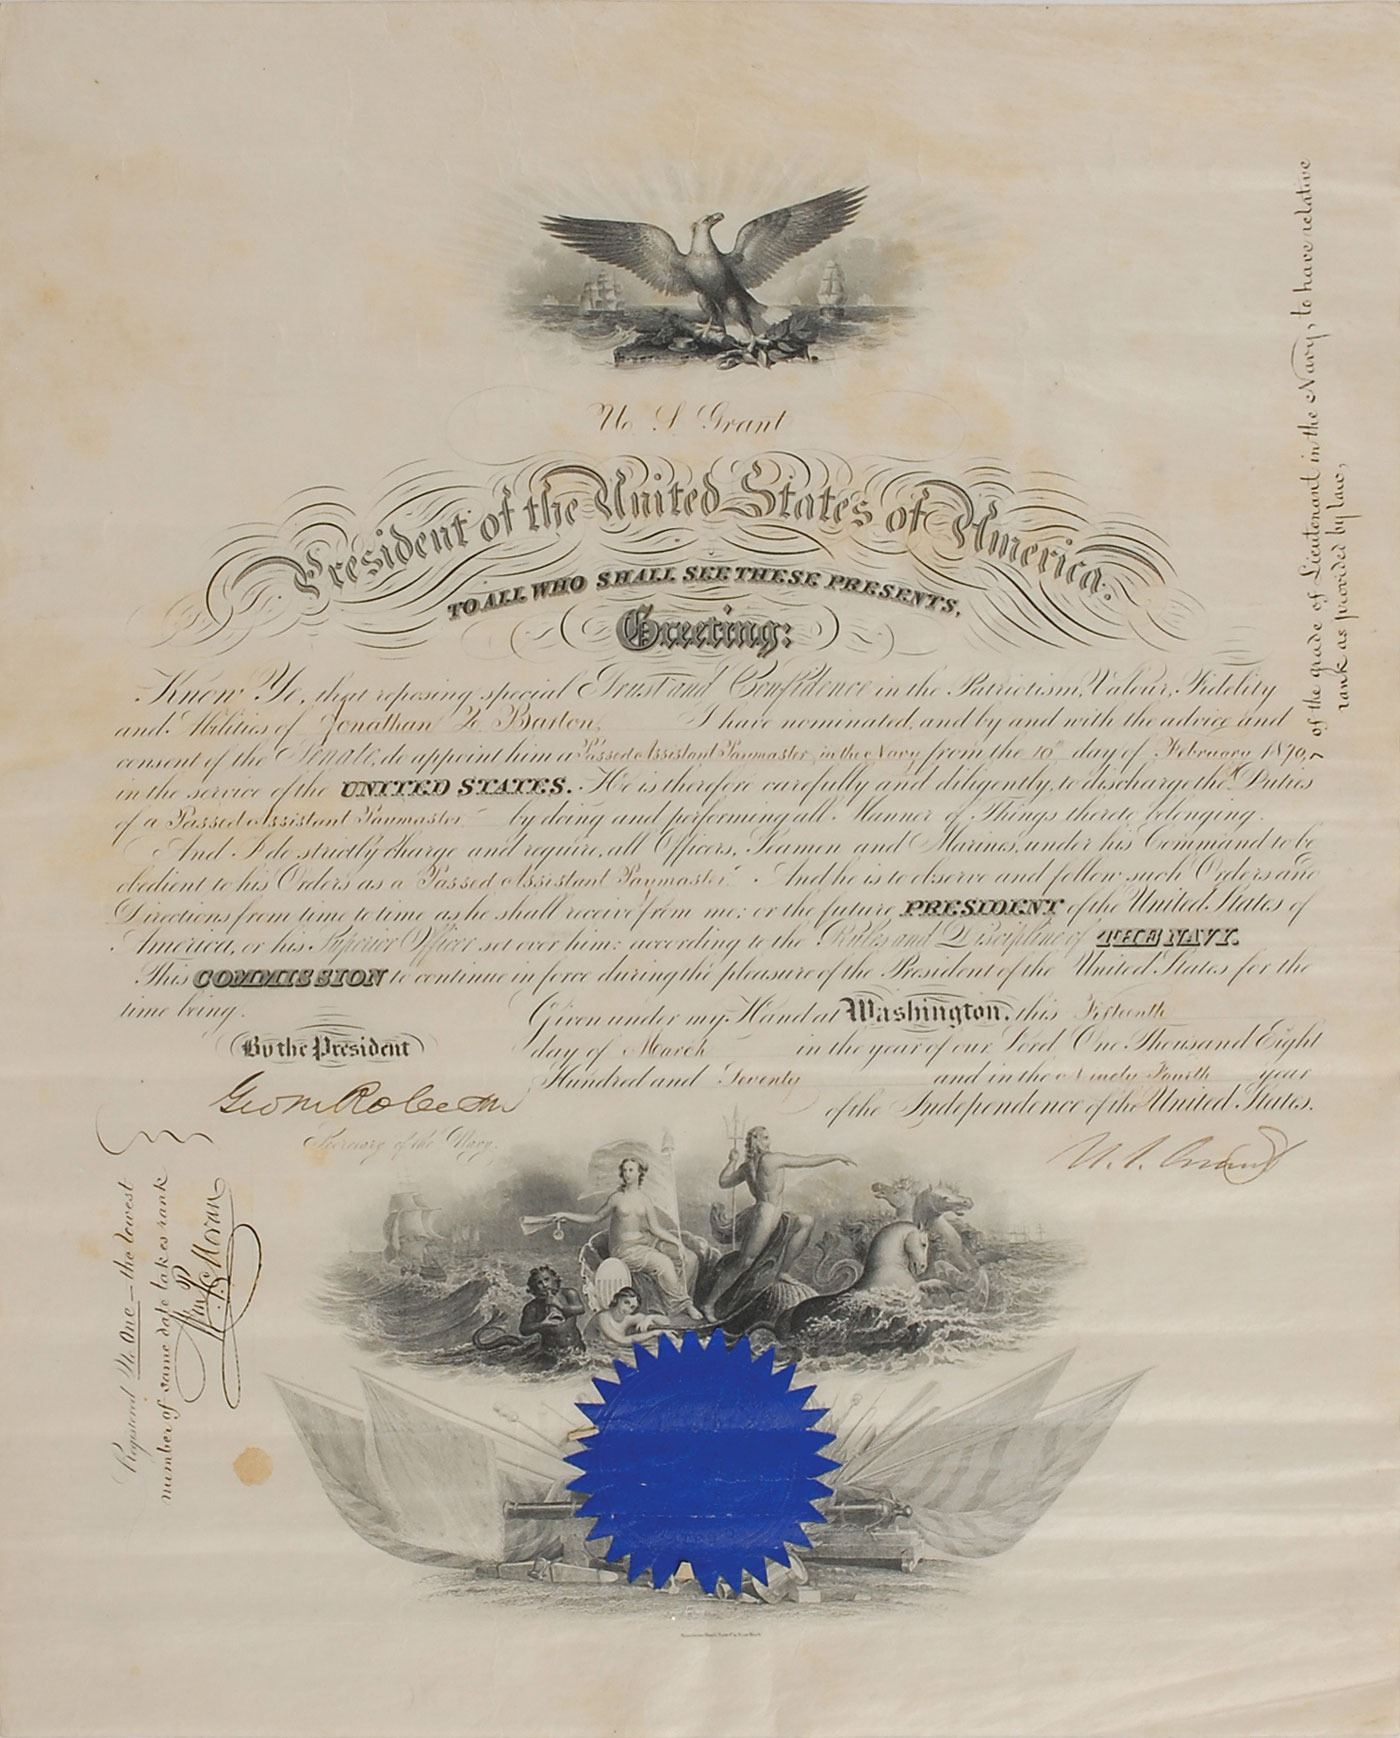 U. S. Grant
President of the United States of America.
TO ALL WHO SHALL SEE THESE PRESENTS,
Greeting:
Know Ye, that reposing special Trust and Confidence in the Patriotism, Valour, Fidelity
and Abilities of Jonathan Q. Barton, I have nominated, and by and with the advice and
consent of the Senate, do appoint him a Passed Assistant Paymaster, in the Navy from the 10th day of February 1870,
in the service of the UNITED STATES. He is therefore carefully and diligently, to discharge the Duties
of a Passed Assistant Paymaster by doing and performing all Manner of Things thereto belonging.
And I do strictly charge and require, all Officers, Seamen and Marines, under his Command to be
obedient to his Orders as a Passed Assistant Paymaster. And he is to observe and follow such Orders and
Directions from time to time as he shall receive from me; or the future PRESIDENT of the United States of
America, or his Superior Officer set over him; according to the Rules and Discipline of THE NAVY.
This COMMISSION to continue in force during the pleasure of the President of the United States for the
time being.
Given under my Hand at Washington, this Fifteenth
day of March in the year of our Lord One Thousand Eight
Hundred and Seventy and in the Ninety Fourth year
of the Independence of the United States.
By the President
Geo M Robeson
Secretary of the Navy.
U. S. Grant
of the grade of Lieutenant in the Navy, to have relative
rank as provided by law,
Registered No. One — the lowest
number of same date takes rank
Moran